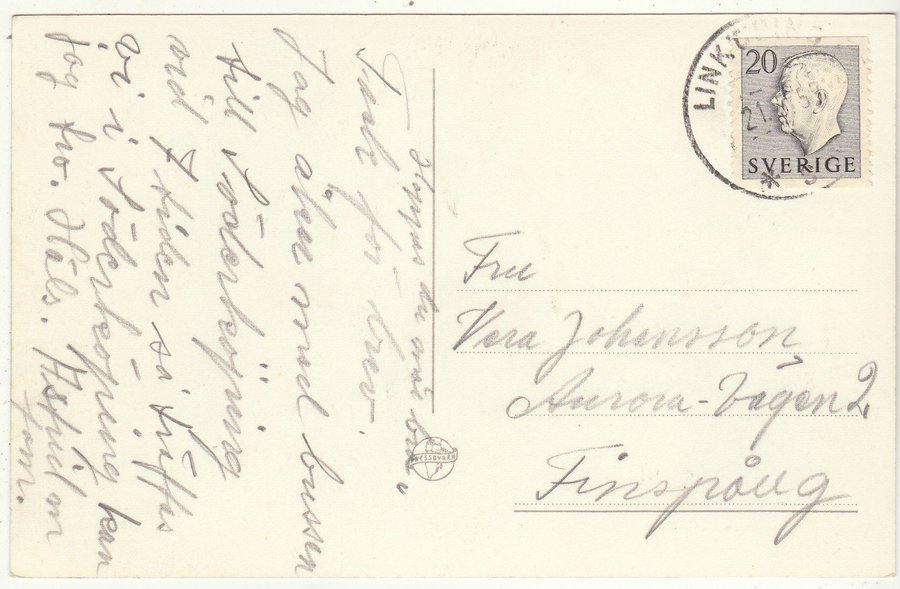 Hoppas du mår bra.
Tack för brev.
Jag åker med bussen
till Söderköping
vid 7 tiden så träffas
vi i Söderköping kan
jag tro. Häls.
fam.
LINKÖPING
21
5
20
SVERIGE
Fru
Vera Johansson
Aurora-Vägen 2,
Finspång
PRESSBYRÅN